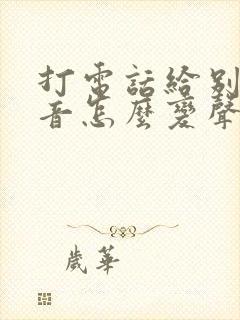 打電話給別
音怎麼變聲
歲華